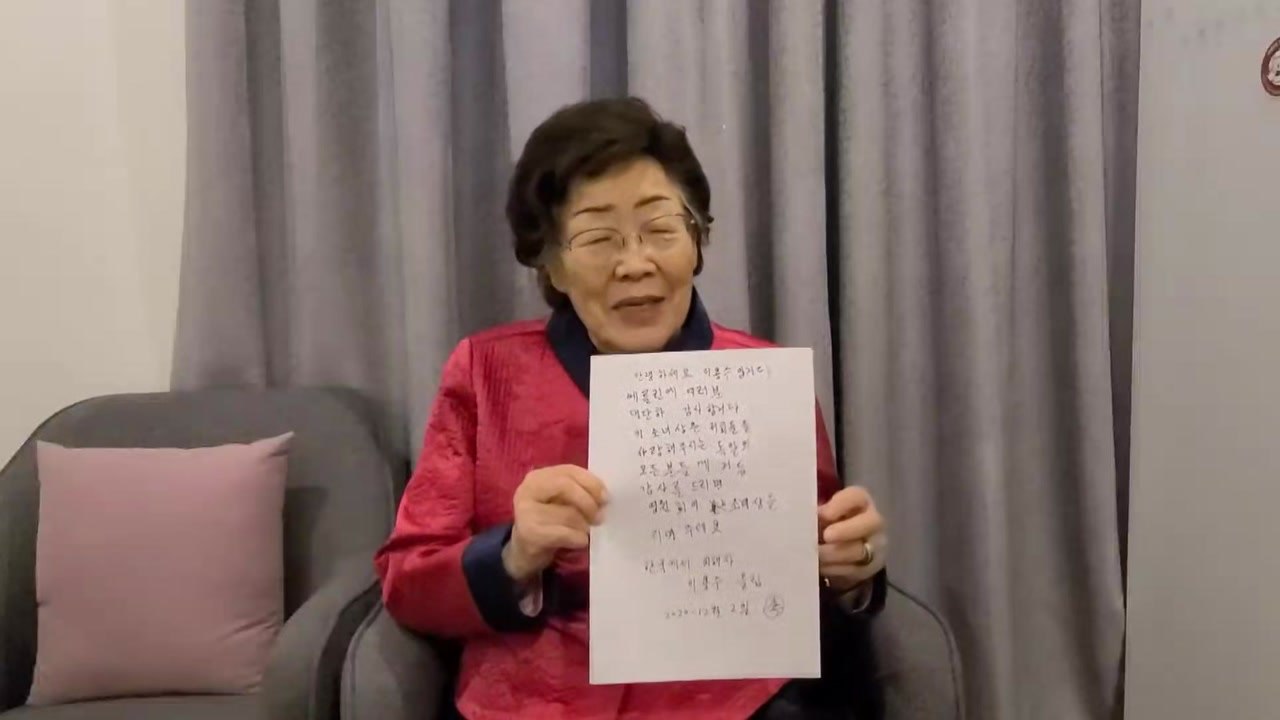 안녕하세요 이용수 입니다
베를린에 여러분
대단하 감사합니다
이 소녀상은
사랑해주시는 독일의
모든분들께
감사를 드리며
소녀상을
주세요
한국에서 피해자
이용수 올림
2020-12월 2일